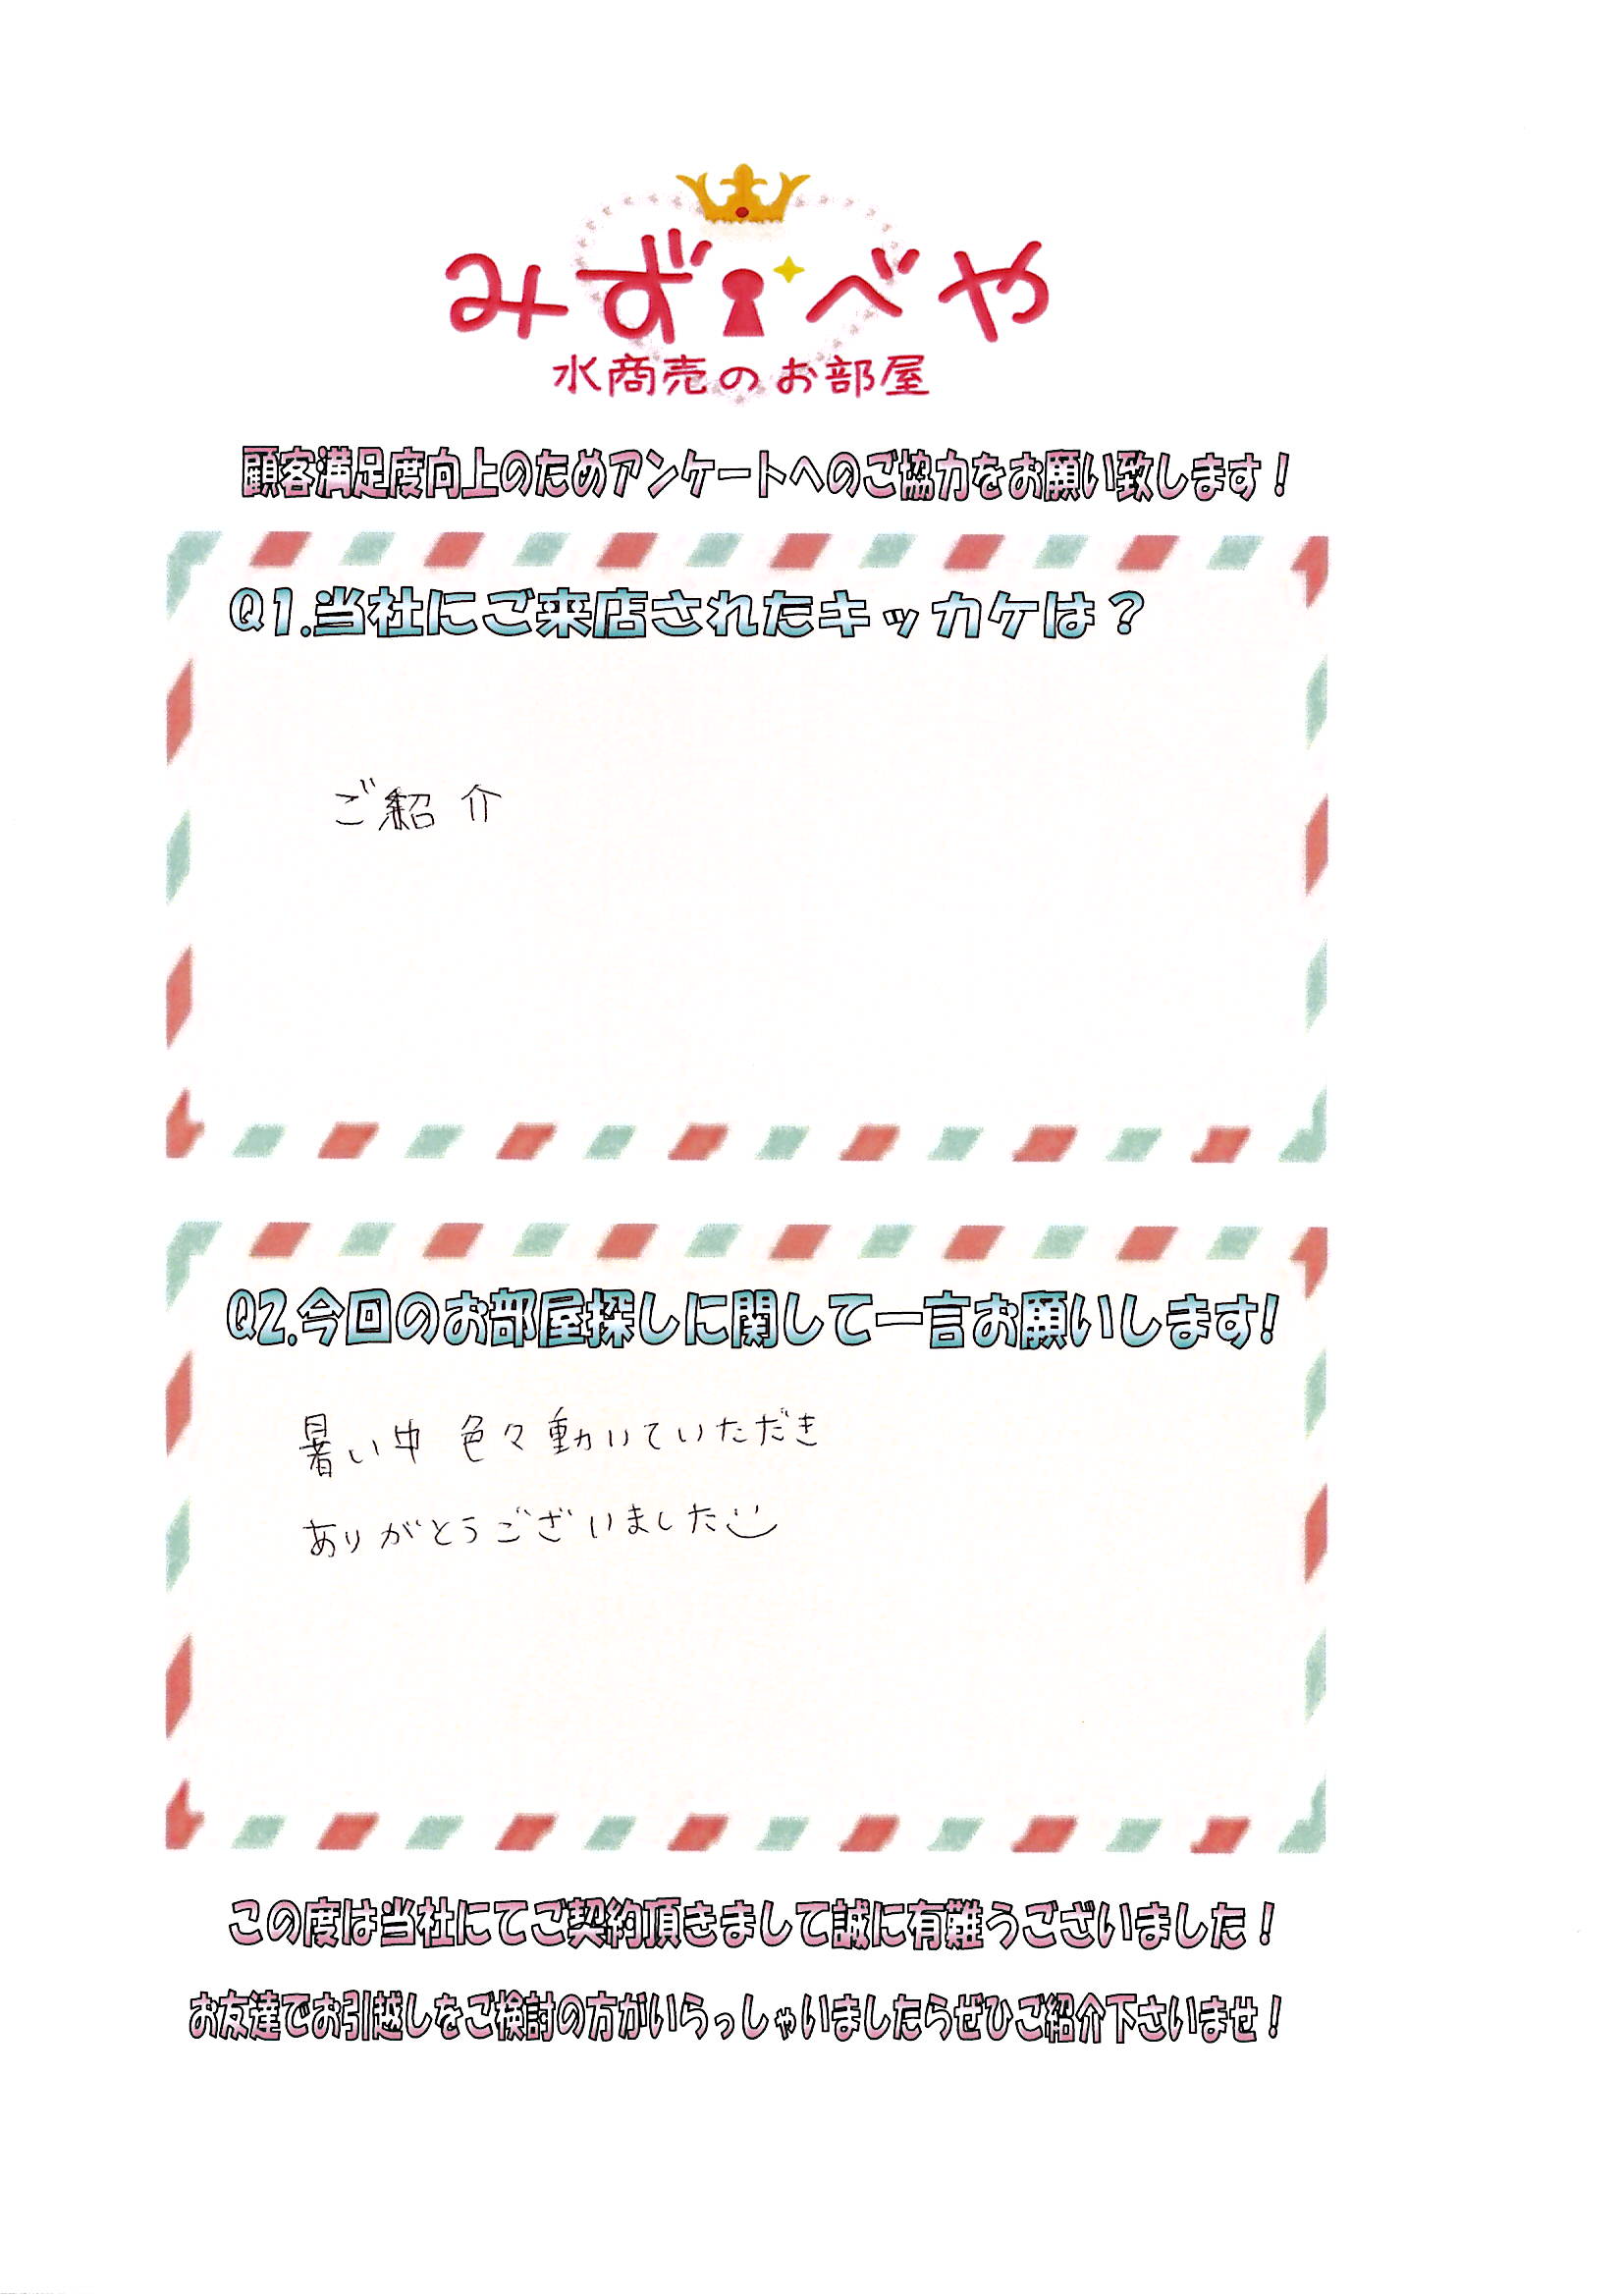 みずべや
水商売のお部屋
顧客満足度向上のためアンケートへのご協力をお願い致します！
Q1.当社にご来店されたキッカケは？
ご紹介
Q2.今回のお部屋探しに関して一言お願いします!
暑い中 色々動いていただき
ありがとうございました
この度は当社にてご契約頂きまして誠に有難うございました！
お友達でお引越しをご検討の方がいらっしゃいましたらぜひご紹介下さいませ！